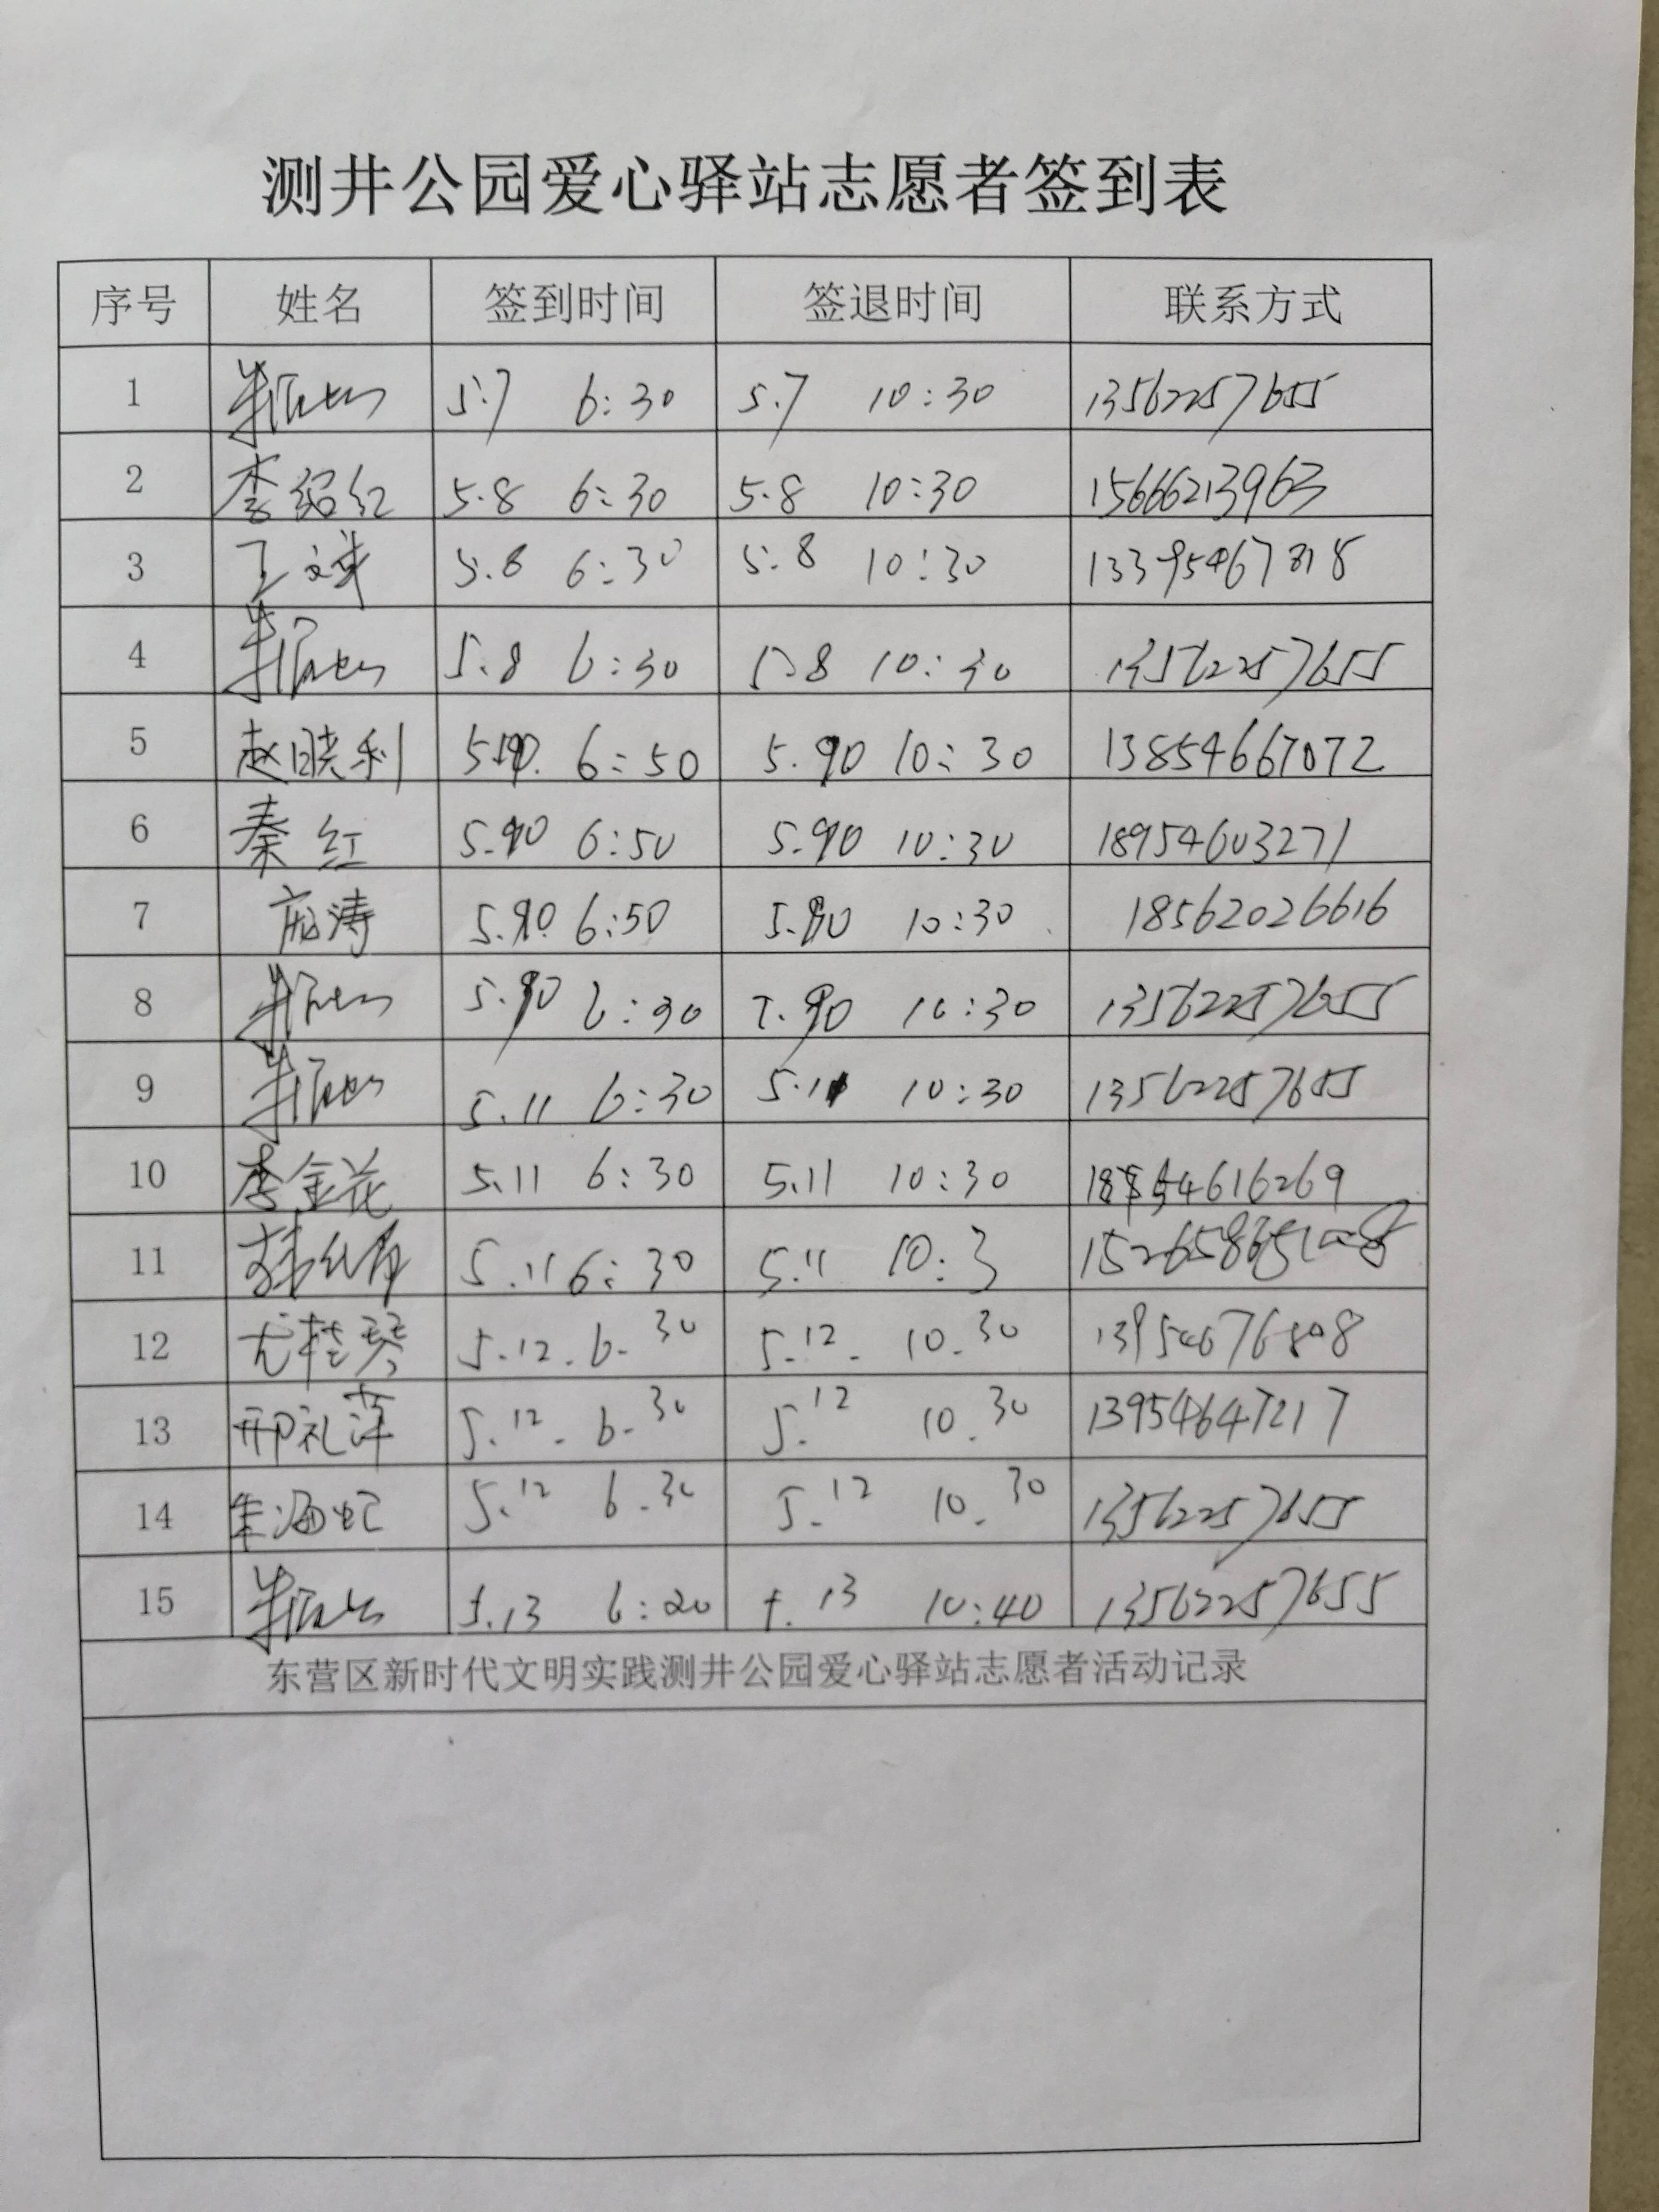 测井公园爱心驿站志愿者签到表
序号 姓名 签到时间 签退时间 联系方式
1 5.7 6:30 5.7 10:30 13562257655
2 李绍红 5.8 6:30 5.8 10:30 15666213963
3 5.8 6:30 5.8 10:30
4 5.8 6:30 5.8 10:30 13562257655
5 赵晓利 6:50 5.90 10:30 13854667072
6 秦红 5.90 6:50 5.90 10:30 18954603271
7 庞涛 5.90 6:50 5.90 10:30 18562026616
8 5.90 6:30 5.90 10:30 13562257655
9 5.11 6:30 5.11 10:30 13562257655
10 李金花 5.11 6:30 5.11 10:30
11 5.11 6:30 5.11 10:3
12 尤桂琴 5.12. 6-30 5.12. 10.30 13954676808
13 邢礼萍 5.12. 6-30 5.12 10.30 13954647217
14 5.12 6-30 5.12 10.30 13562257655
15 5.13 6:20 5.13 10:40 13562257655
东营区新时代文明实践测井公园爱心驿站志愿者活动记录